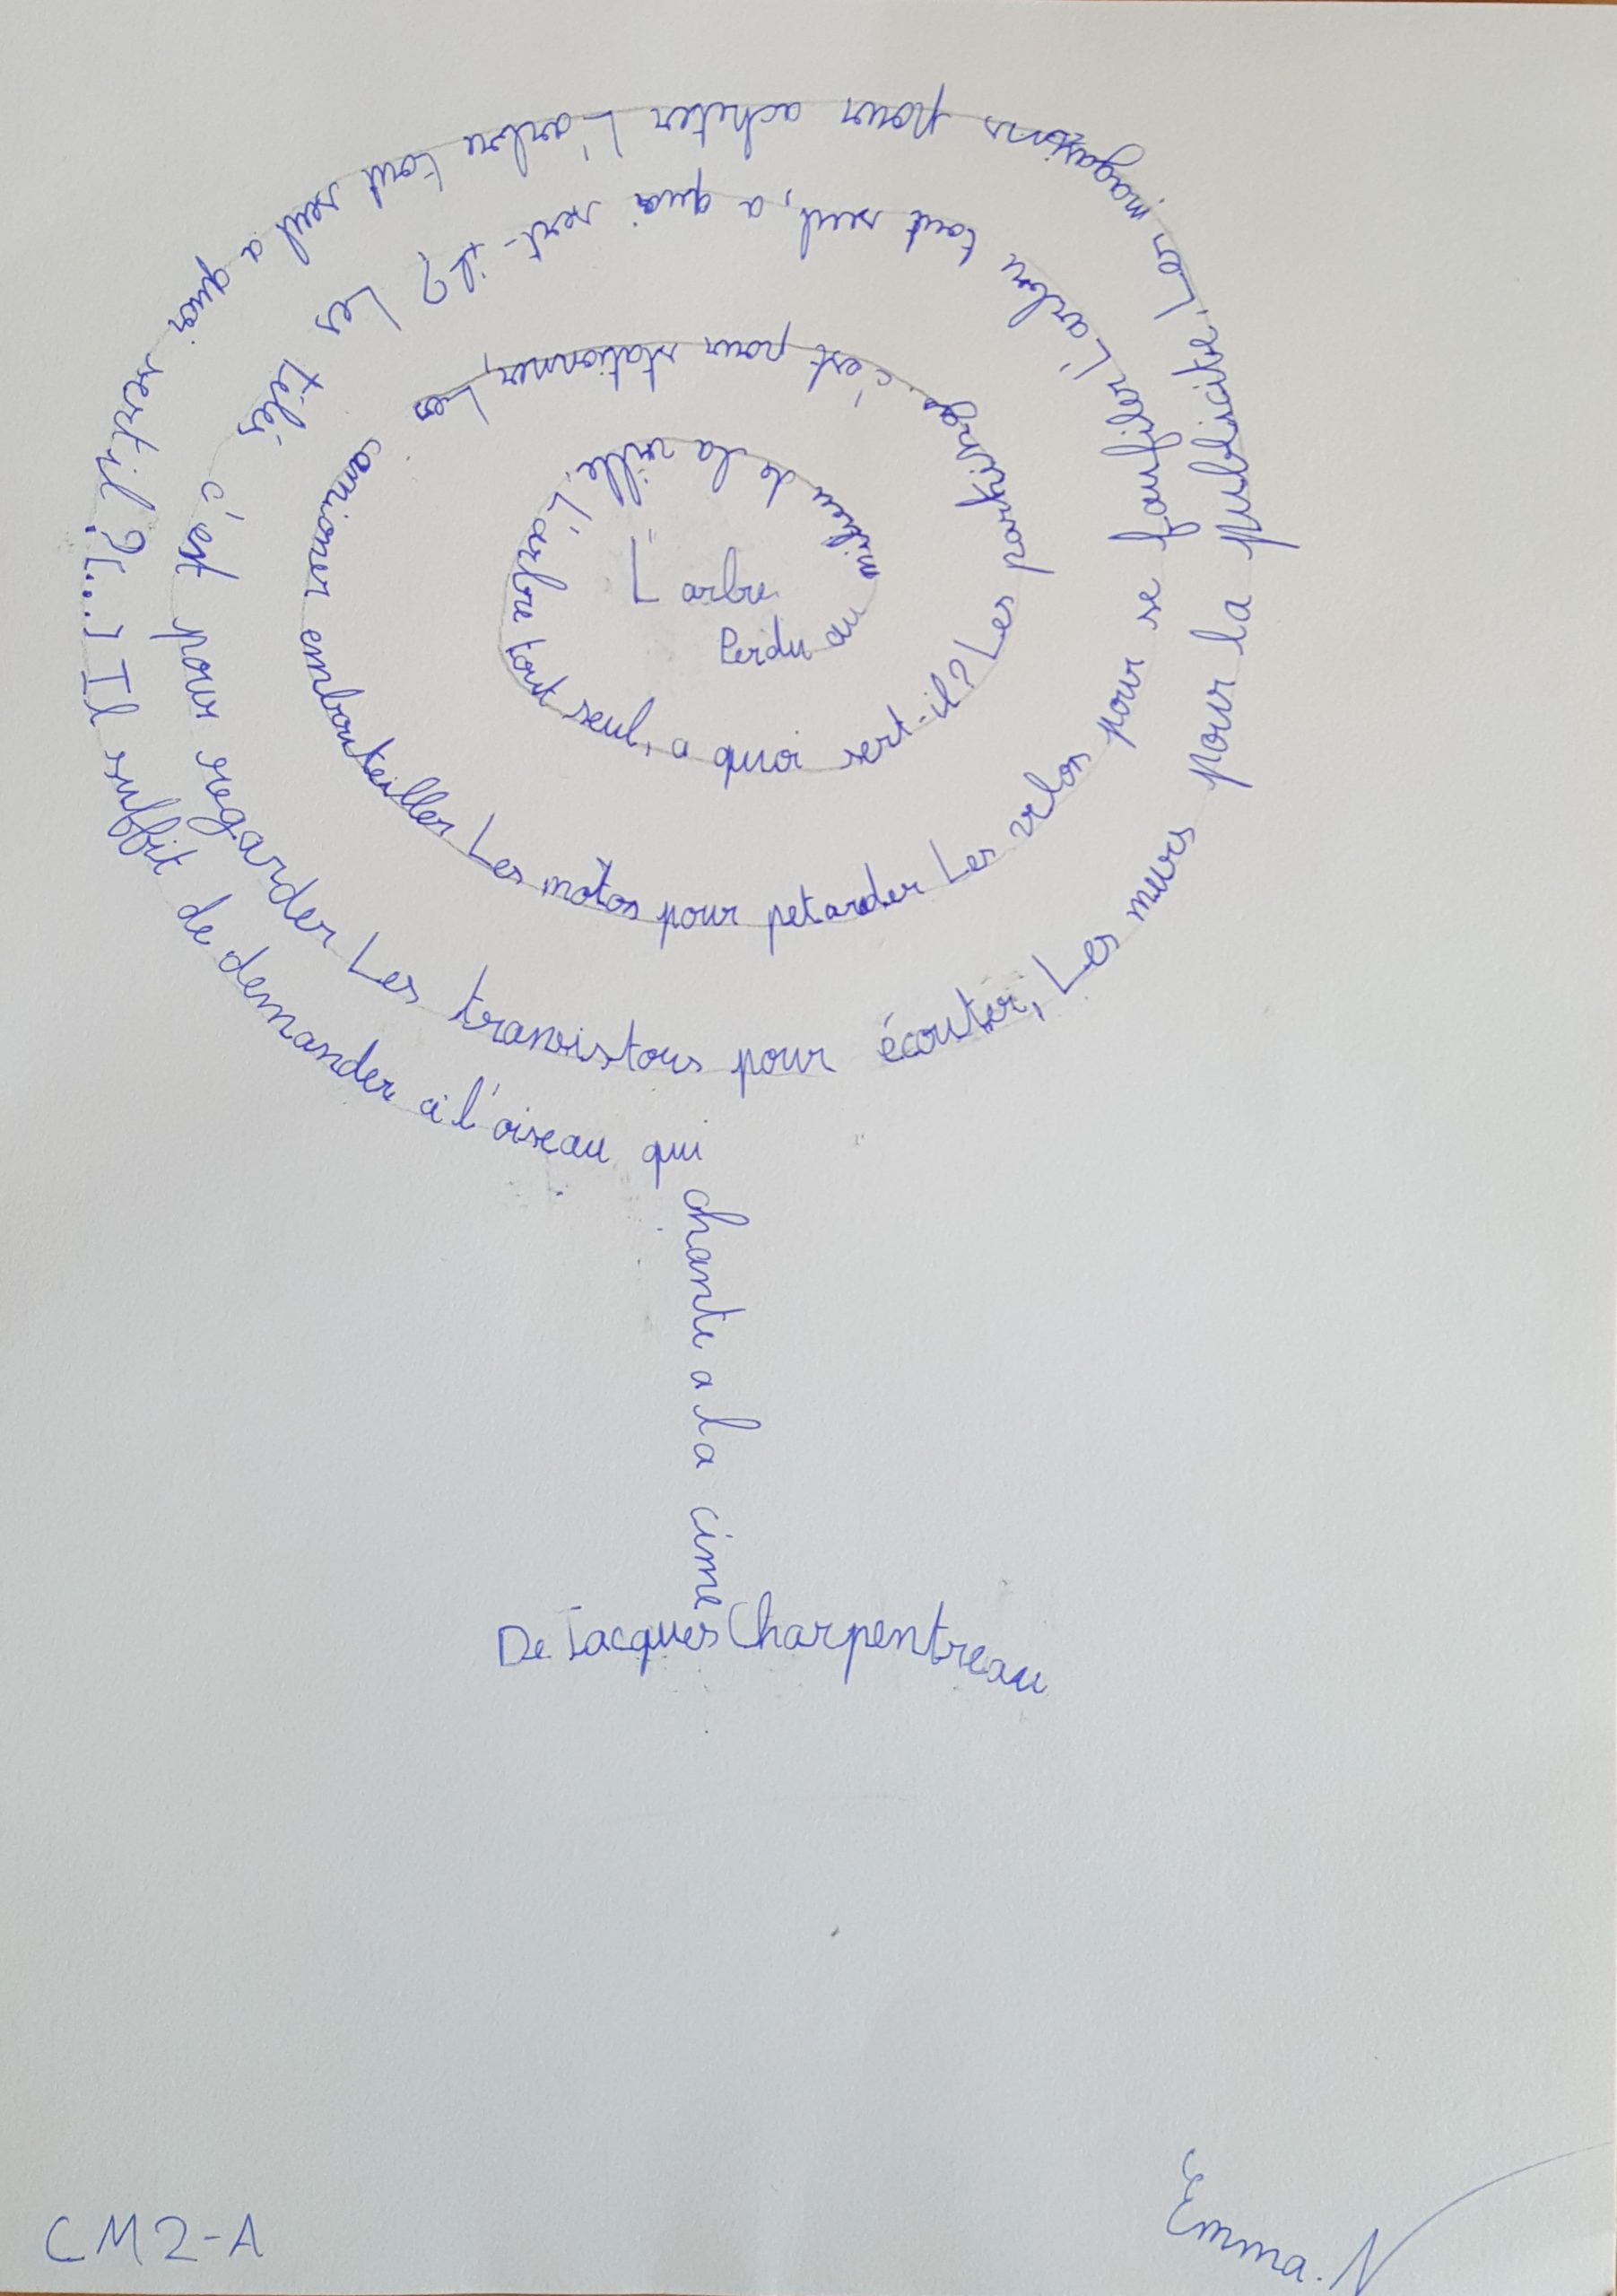 L'arbre
Perdu au milieu de la ville, L'arbre tout seul, a quoi sert-il? Les parkings, c'est pour stationner, Les camioner embouteiller Les motos pour petarder Les velos pour se faufiler L'arbre tout seul, a quoi sert-il? Les télés c'est pour regarder Les transistors pour écouter, Les murs pour la publicité, Les magasins pour acheter L'arbre tout seul a quoi sertil?[...] Il suffit de demander à l'oiseau qui chante a la cime
De Jacques Charpentreau
CM2-A
Emma.N